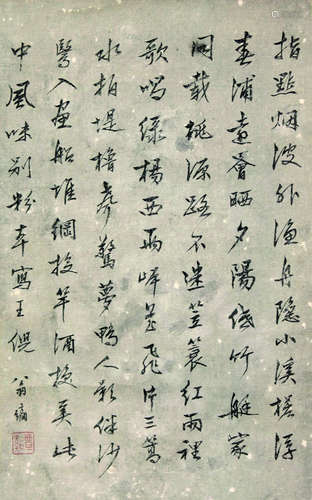 指點烟波外漁舟隱小溪槎浮
春浦遠罾晒夕陽低竹艇家
同載桃源路不迷笠蓑紅雨裡
歌唱綠楊西兩岸花飛片三篙
水拍堤櫓聲驚夢鴨人影伴沙
鷖入畫船堆網投竿酒換奚此
中風味別粉本寫王倪
翁